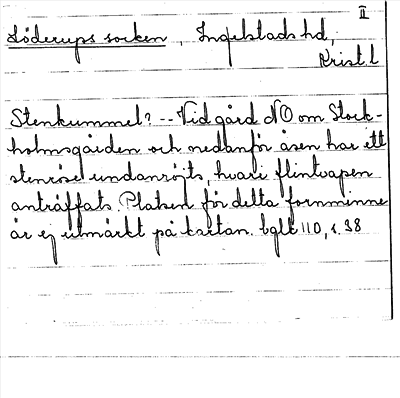 II
Löderups socken, Ingelstads hd,
Krist. l
Stenkummel? -- Vid gård NO om Stock-
holmsgården och nedanför åsen har ett
stenröse undanröjts, hvari flintvapen
anträffats. Platsen för detta fornminne
är ej utmärkt på kartan. bglt 110, s. 38